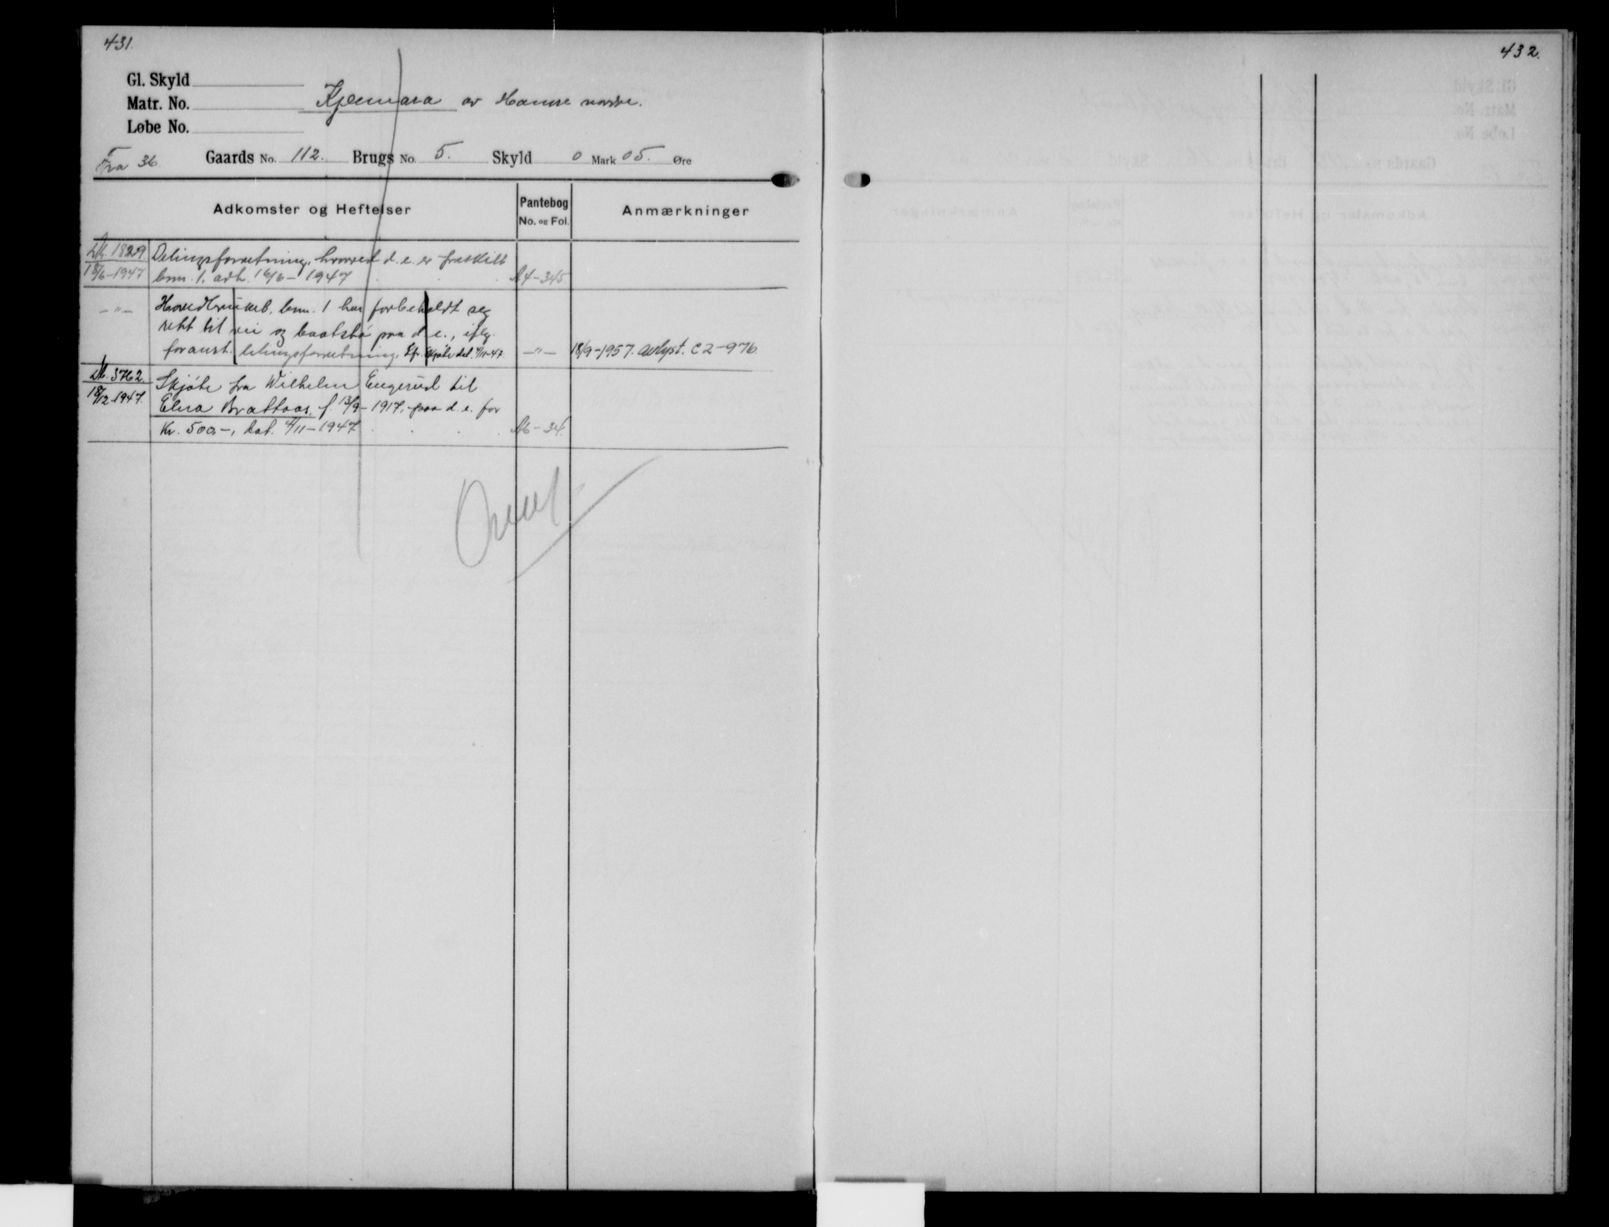 431.
432.
Gl. Skyld
Matr. No. Kjennasa av Hamre nordre.
Løbe No.
Fra 36 Gaards No. 112. Brugs No. 5. Skyld 0 Mark 05. Øre
Adkomster og Heftelser
Pantebog
No. og Fol.
Anmærkninger
Db. 1829 Delingsforretning, hvorved d. e. er fraskilt
18/6-1947 bnr. 1, avh. 16/6-1947 A4-345
-"- Hovedbruket, bnr. 1 har forbeholdt seg
rett til vei og baatstø paa d. e., iflg.
foranst. delingsforretning. Jf. skjøte dat. 4/11-47. -"- 18/9-1957. Avlyst. C2-976.
Db. 3762 Skjøte fra Wilhelm Engerud til
18/12-1947. Elna Brattaas, f. 13/9-1917, paa d. e. for
Kr. 500,-, dat. 4/11-1947 A6-34.